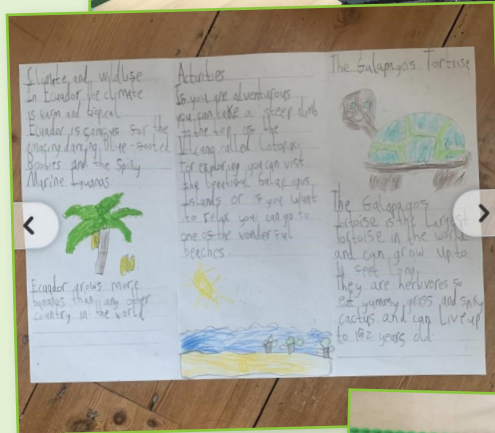 Climate and wildlife
In Ecuador the climate
is warm and tropical
Ecuador is famous for the
amazing dancing blue-footed
Boobies and the Spiky
Marine iguanas.
Ecuador grows more
bananas than any other
country in the world
Activities
If you are adventurous
you can take a steep climb
to the top of the
Volcano called Cotopaxi
For exploring you can visit
the beautiful Galapagos
islands or if you want
to relax you can go to
one of the wonderful
beaches.
The Galapagos Tortoise
The Galapagos
tortoise is the largest
tortoise in the world
and can grow up to
4 feet long.
They are herbivores so
eat yummy grass and spiky
cactus and can live up
to years old